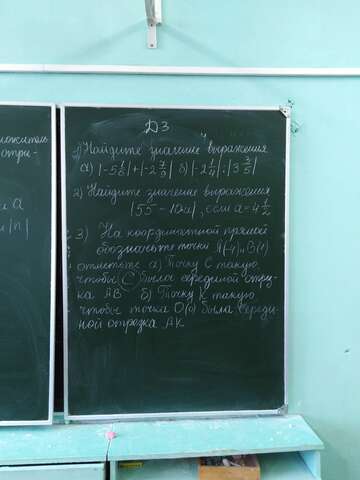 ДЗ
1) Найдите значение выражения
а) |-5 1/6| + |-2 7/9| б) |-2 1/4| : |3 3/5|
2) Найдите значение выражения
|55 - 10a|, если a = 4 1/2
3) На координатной прямой
обозначьте точки A(-7) и B(1)
отметьте а) Точку С такую,
чтобы С была серединой отрез-
ка AB б) Точку К такую
чтобы точка O(0) была середи-
ной отрезка AK
ножитель
отри-
a
|n|